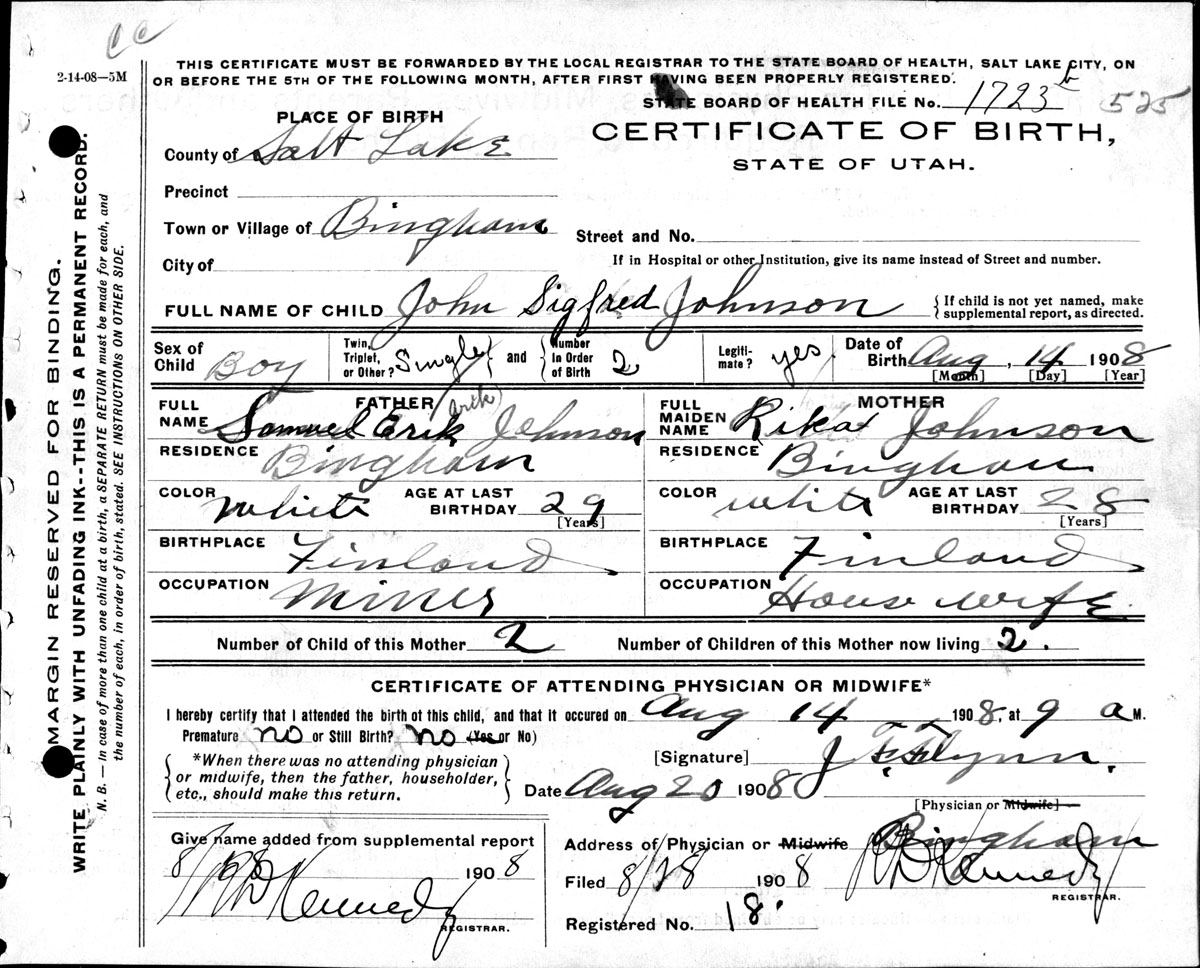 2-14-08—5M
THIS CERTIFICATE MUST BE FORWARDED BY THE LOCAL REGISTRAR TO THE STATE BOARD OF HEALTH, SALT LAKE CITY, ON
OR BEFORE THE 5TH OF THE FOLLOWING MONTH, AFTER FIRST HAVING BEEN PROPERLY REGISTERED.
STATE BOARD OF HEALTH FILE No. 1723 b 525
PLACE OF BIRTH
CERTIFICATE OF BIRTH,
STATE OF UTAH.
County of Salt Lake
Precinct
Town or Village of Bingham
Street and No.
City of
If in Hospital or other Institution, give its name instead of Street and number.
FULL NAME OF CHILD John Sigfred Johnson { If child is not yet named, make supplemental report, as directed.
Sex of Child Boy Twin, Triplet, or Other? Single } and { Number In Order of Birth 2 Legiti- mate? yes Date of Birth Aug, 14 1908
[Month] [Day] [Year]
FATHER (Arik) MOTHER
FULL NAME Samuel Erik Johnson FULL MAIDEN NAME Rika Johnson
RESIDENCE Bingham RESIDENCE Bingham
COLOR White AGE AT LAST BIRTHDAY 29 [Years] COLOR White AGE AT LAST BIRTHDAY 28 [Years]
BIRTHPLACE Finland BIRTHPLACE Finland
OCCUPATION Miner OCCUPATION House wife
Number of Child of this Mother 2 Number of Children of this Mother now living 2.
CERTIFICATE OF ATTENDING PHYSICIAN OR MIDWIFE*
I hereby certify that I attended the birth of this child, and that it occured on Aug 14 1908, at 9 a M.
Premature no or Still Birth? no (Yes or No)
{ *When there was no attending physician or midwife, then the father, householder, etc., should make this return. }
[Signature] J F Flynn.
Date Aug 20 1908
[Physician or Midwife]
Give name added from supplemental report
8/28 1908
R D Kennedy
REGISTRAR.
Address of Physician or Midwife Bingham
Filed 8/28 1908 R D Kennedy
REGISTRAR.
Registered No. 18.
MARGIN RESERVED FOR BINDING.
WRITE PLAINLY WITH UNFADING INK--THIS IS A PERMANENT RECORD.
N. B. — In case of more than one child at a birth, a SEPARATE RETURN must be made for each, and
the number of each, in order of birth, stated. SEE INSTRUCTIONS ON OTHER SIDE.